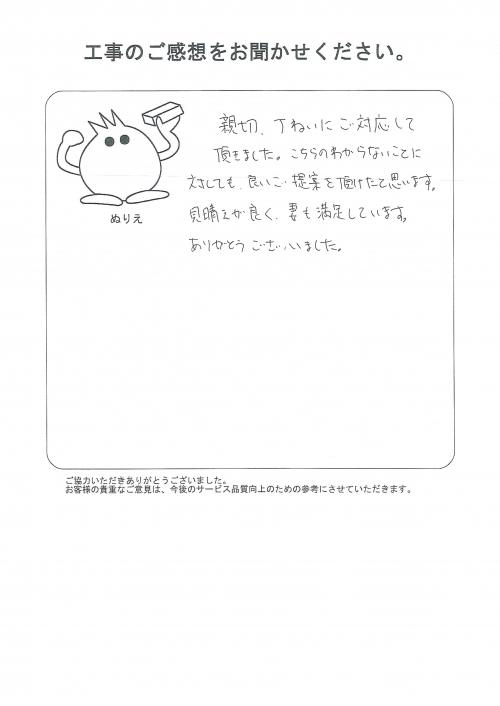 工事のご感想をお聞かせください。
親切、丁ねいにご対応して
頂きました。こちらのわからないことに
対しても、良いご提案を頂けたと思います。
見晴えが良く、妻も満足しています。
ありがとうございました。
ぬりえ
ご協力いただきありがとうございました。
お客様の貴重なご意見は、今後のサービス品質向上のための参考にさせていただきます。